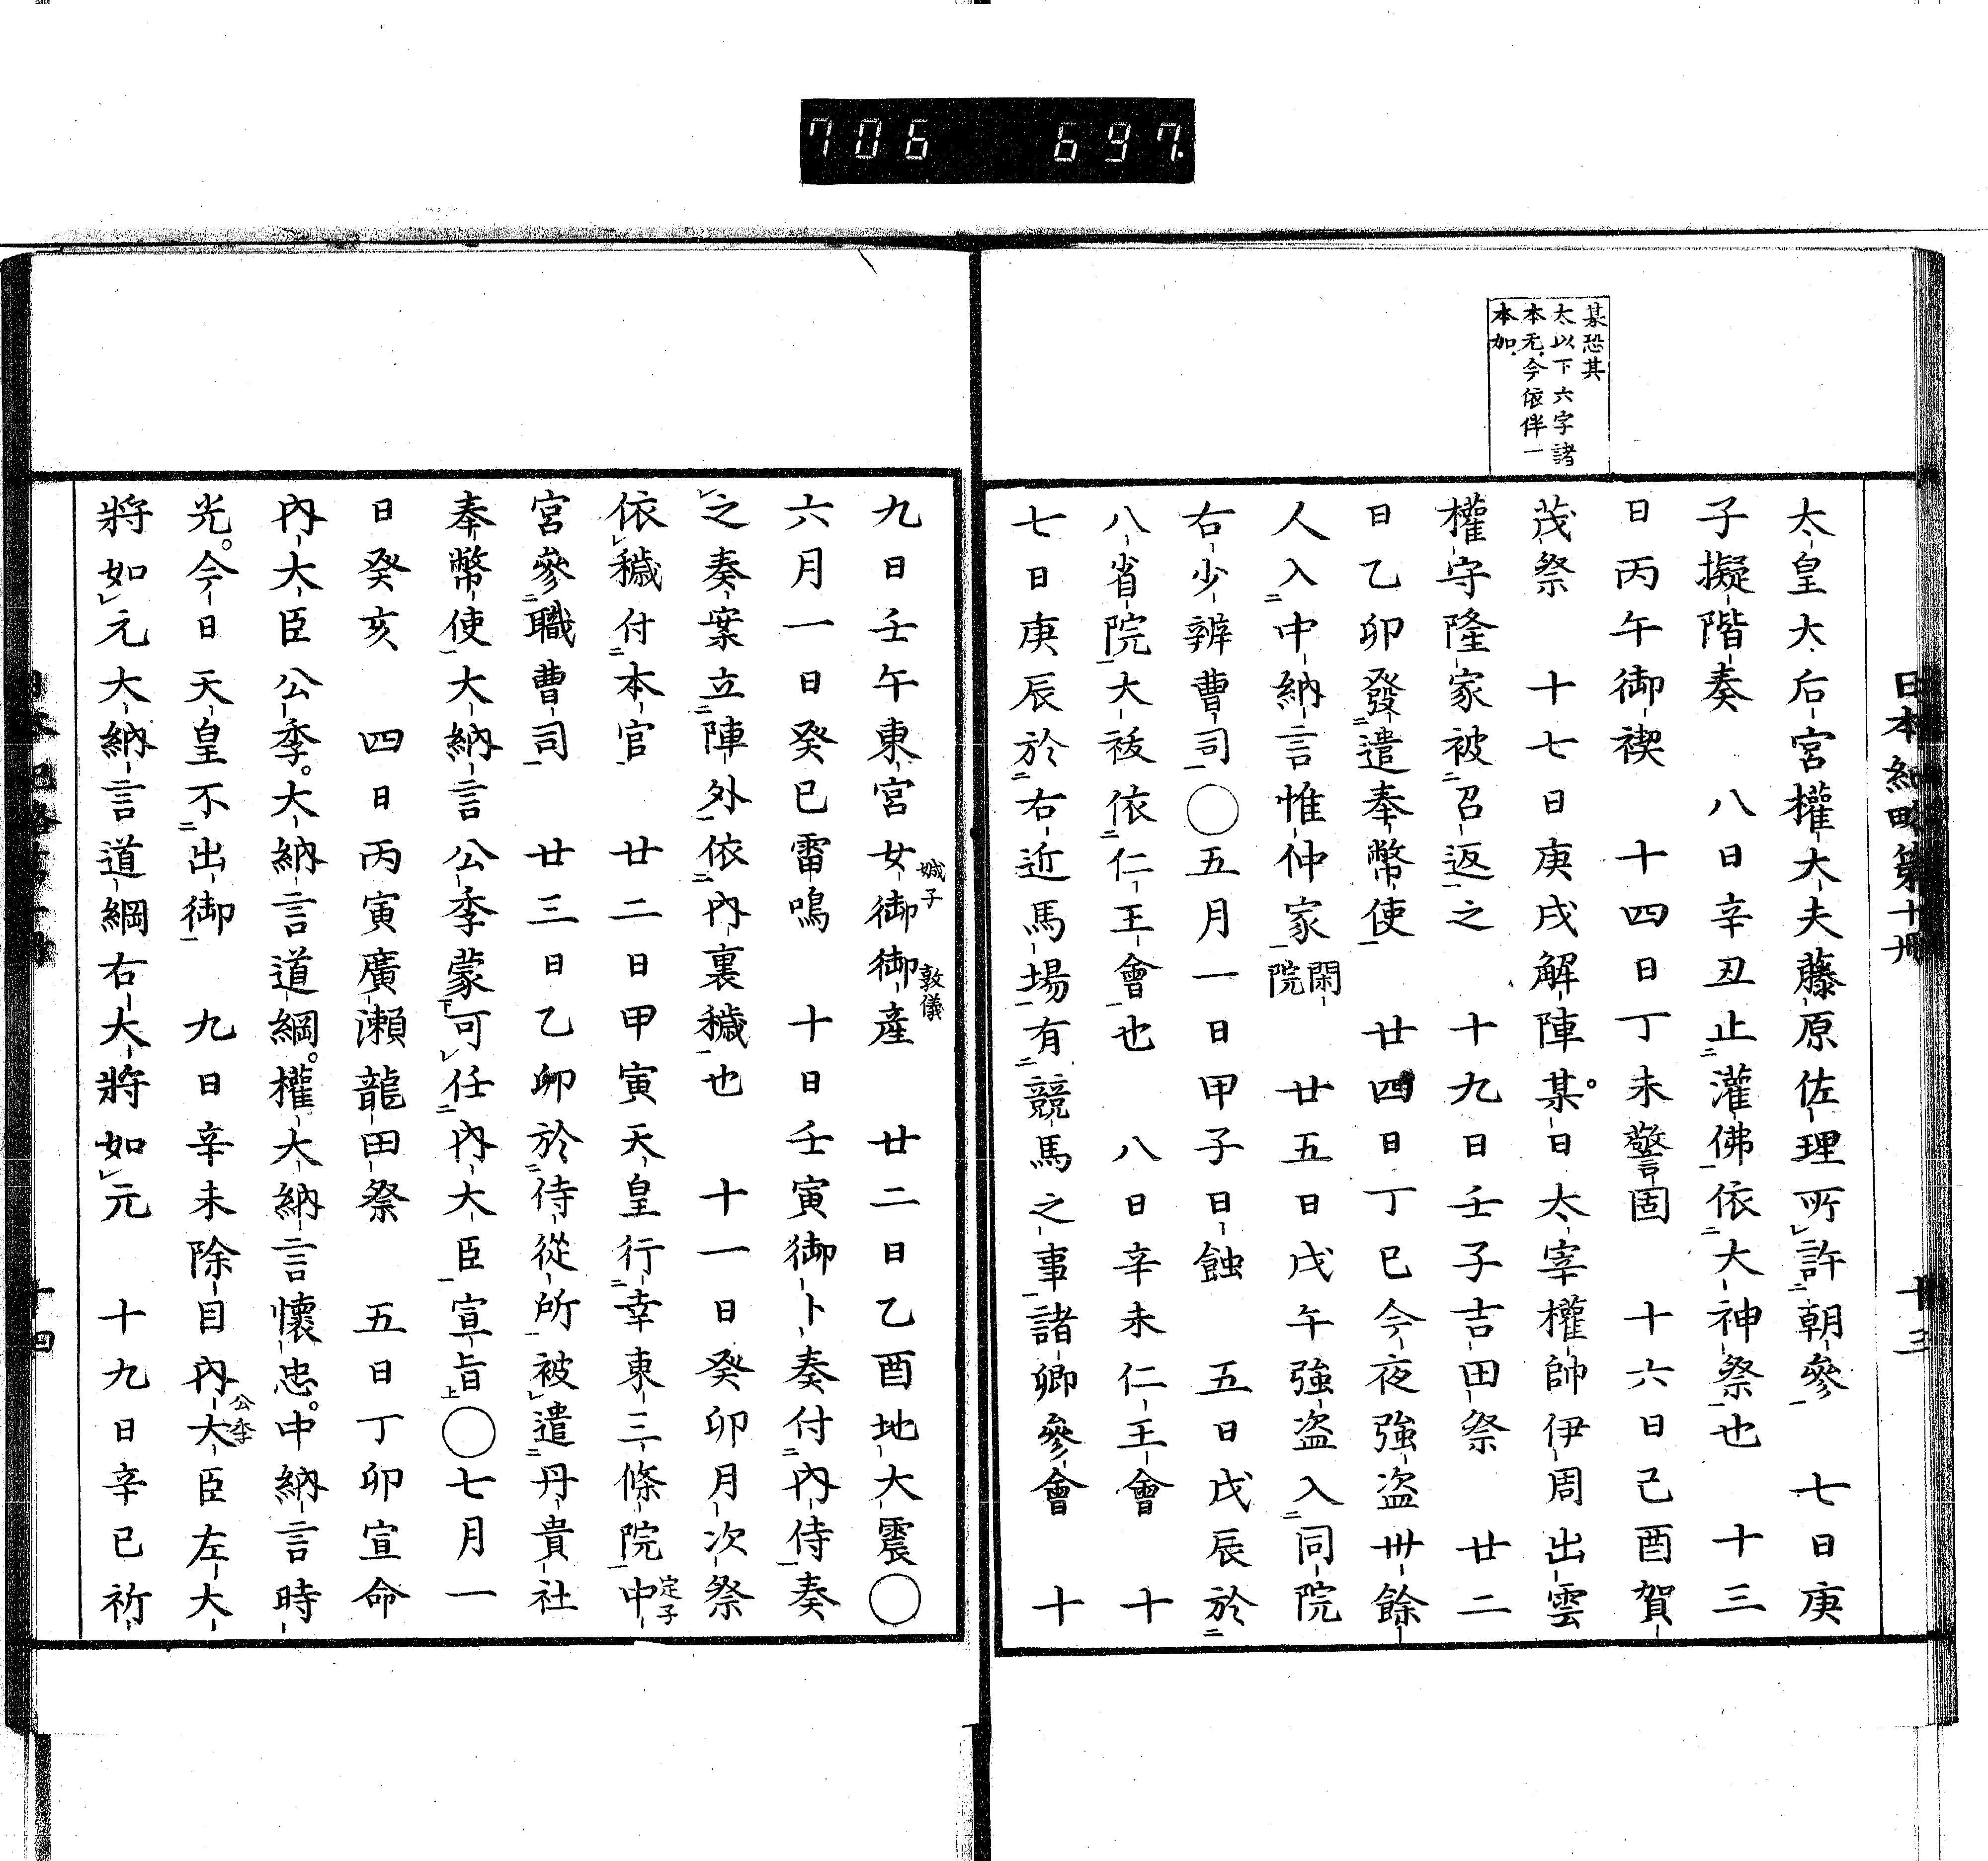 706 697.
日本紀略第十冊 十三
某恐其
太以下六字諸
本无今依伴一
本加
太皇大后宮權大夫藤原佐理所許朝參 七日庚
子擬階奏 八日辛丑止灌佛依大神祭也 十三
日丙午御禊 十四日丁未警固 十六日己酉賀
茂祭 十七日庚戌解陣某日太宰權帥伊周出雲
權守隆家被召返之 十九日壬子吉田祭 廿二
日乙卯發遣奉幣使 廿四日丁巳今夜強盜卅餘
人入中納言惟仲家閑院 廿五日戊午強盜入同院
右少辨曹司○五月一日甲子日蝕 五日戊辰於
八省院大祓依仁王會也 八日辛未仁王會 十
七日庚辰於右近馬場有競馬之事諸卿參會 十
九日壬午東宮女御娍子御產敦儀 廿二日乙酉地大震○
六月一日癸巳雷鳴 十日壬寅御卜奏付內侍奏
之奏案立陣外依內裏穢也 十一日癸卯月次祭
依穢付本官 廿二日甲寅天皇行幸東三條院中定子
宮參職曹司 廿三日乙卯於侍從所被遣丹貴社
奉幣使大納言公季蒙可任內大臣宣旨○七月一
日癸亥 四日丙寅廣瀨龍田祭 五日丁卯宣命
內大臣公季大納言道綱權大納言懷忠中納言時
光今日天皇不出御 九日辛未除目內大臣公季左大
將如元大納言道綱右大將如元 十九日辛巳祈
十四